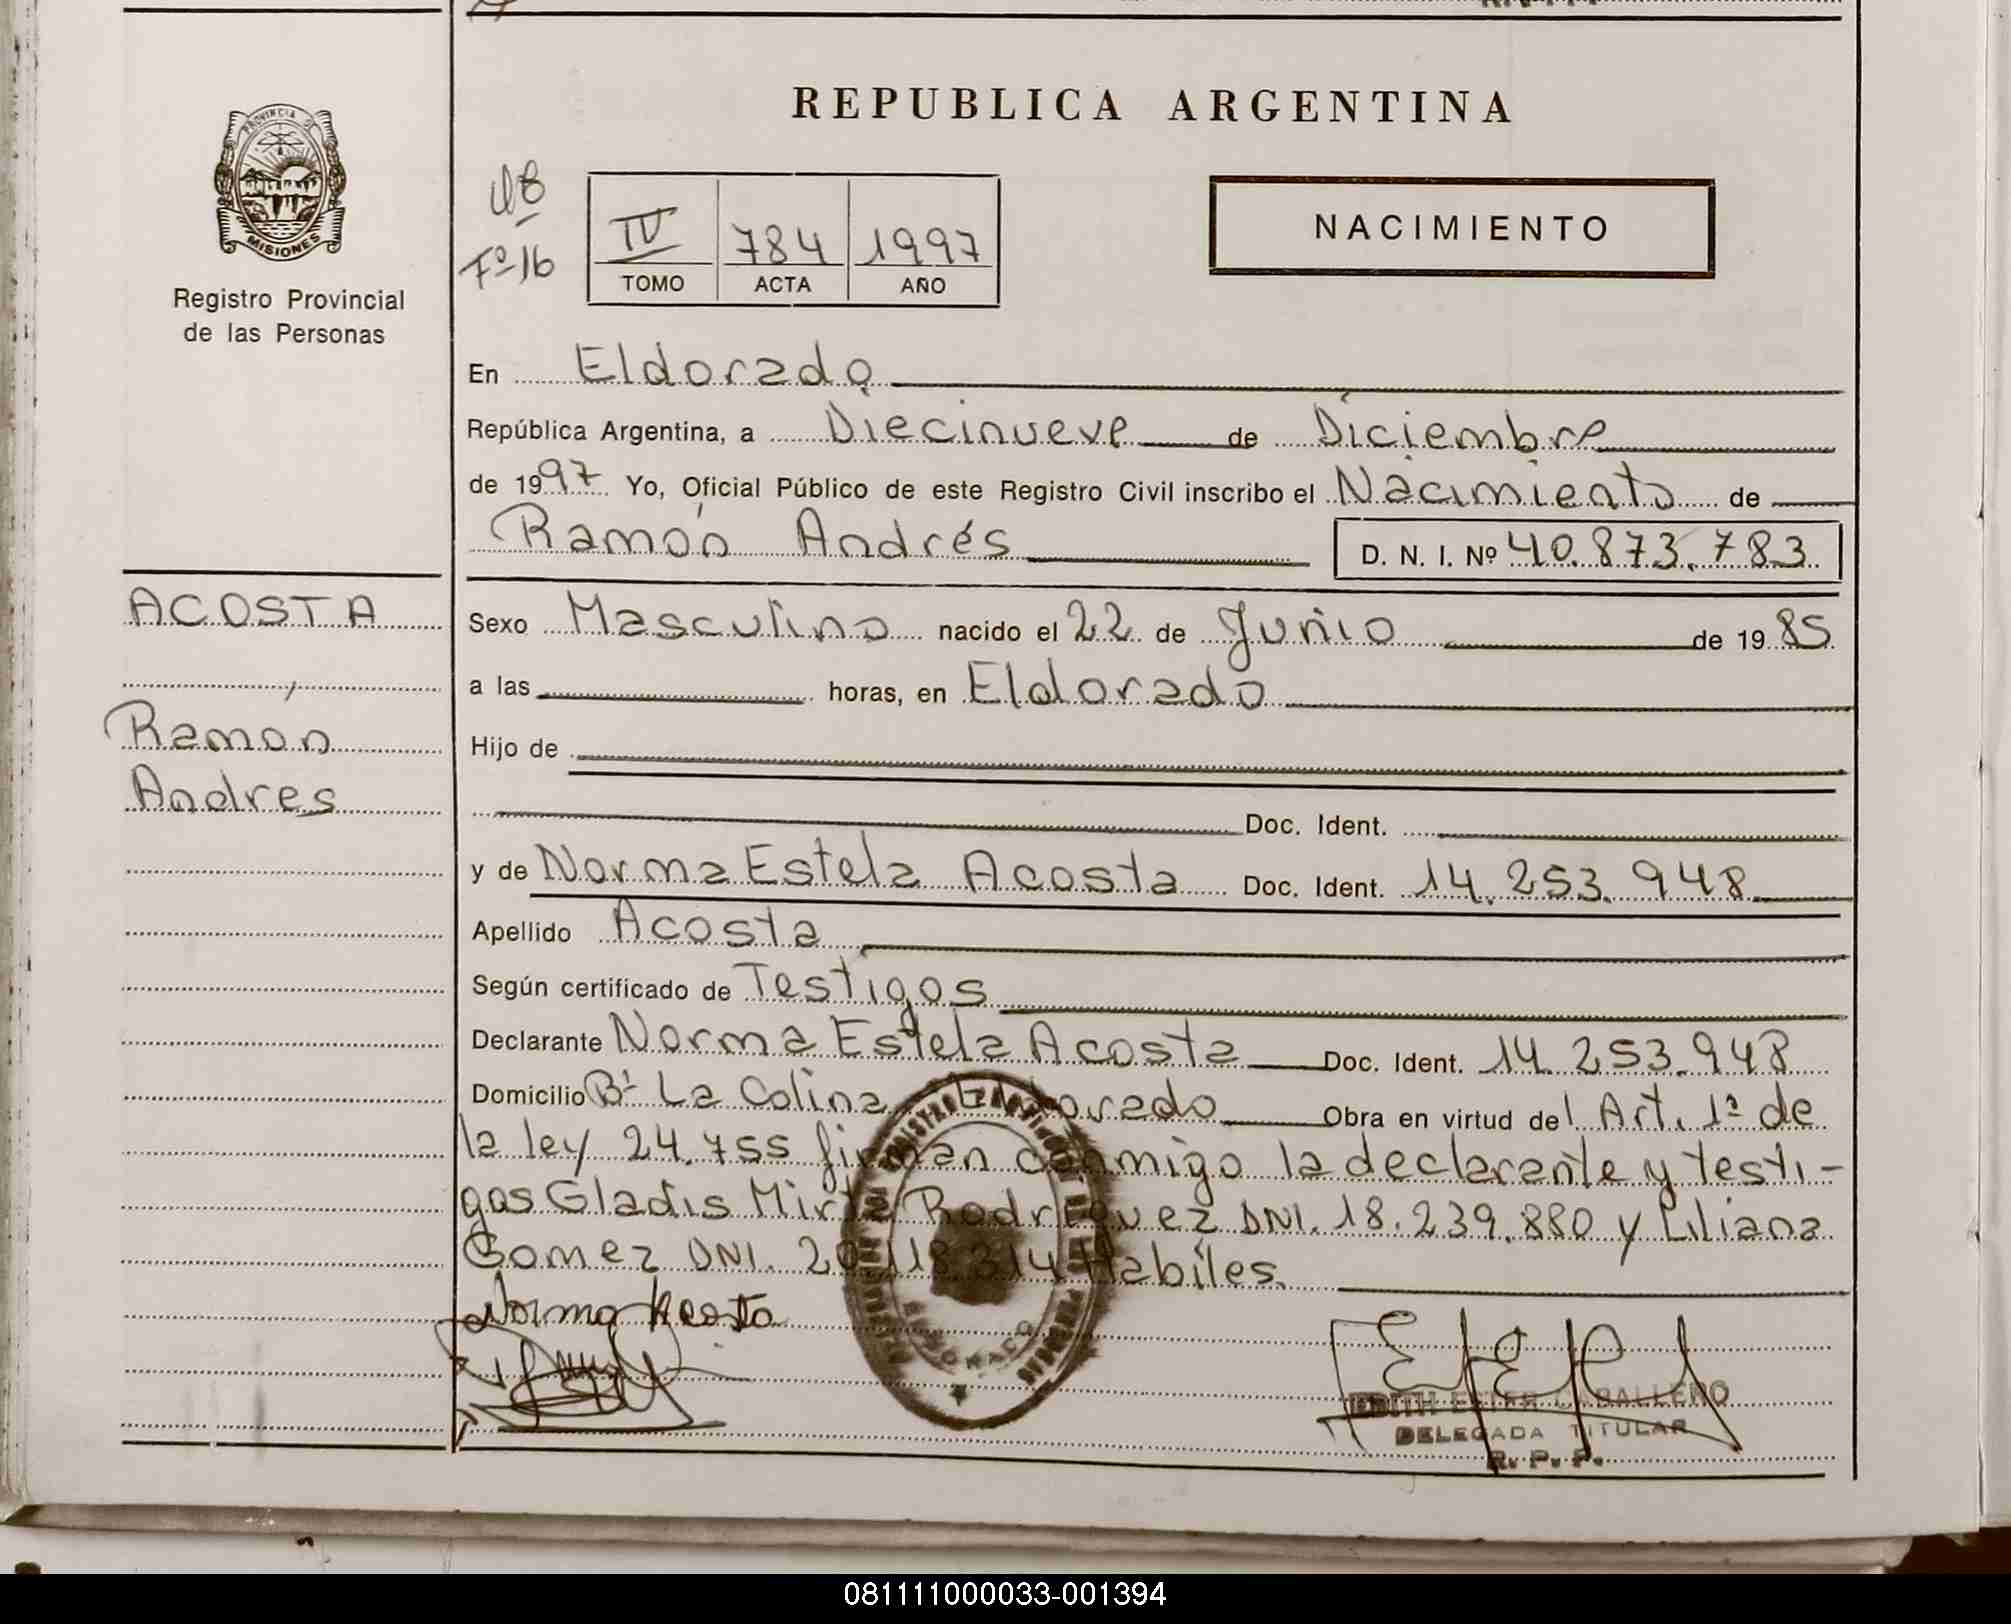 REPUBLICA ARGENTINA
PROVINCIA DE
MISIONES
Registro Provincial
de las Personas
Fº 16
IV 784 1997
TOMO ACTA AÑO
NACIMIENTO
En Eldorado
República Argentina, a Diecinueve de Diciembre
de 1997 Yo, Oficial Público de este Registro Civil inscribo el Nacimiento de
Ramón Andrés D. N. I. Nº 40.873.783
ACOSTA
,
Ramón
Andres
Sexo Masculino nacido el 22 de Junio de 1985
a las horas, en Eldorado
Hijo de
Doc. Ident.
y de Norma Estela Acosta Doc. Ident. 14.253.948
Apellido Acosta
Según certificado de Testigos
Declarante Norma Estela Acosta Doc. Ident. 14.253.948
Domicilio Bº La Colina Eldorado Obra en virtud del Art. 1º de
la ley 24.755 firman conmigo la declarante y testi-
gos Gladis Mirta Rodriguez DNI. 18.239.880 y Liliana
Gomez DNI. 20.118.314 Habiles.
Norma Acosta
EDITH ESTER CABALLERO
DELEGADA TITULAR
R. P. P.
081111000033-001394